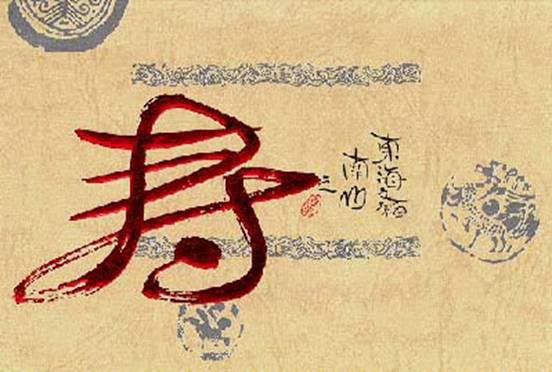 東海之福
南山
之
寿